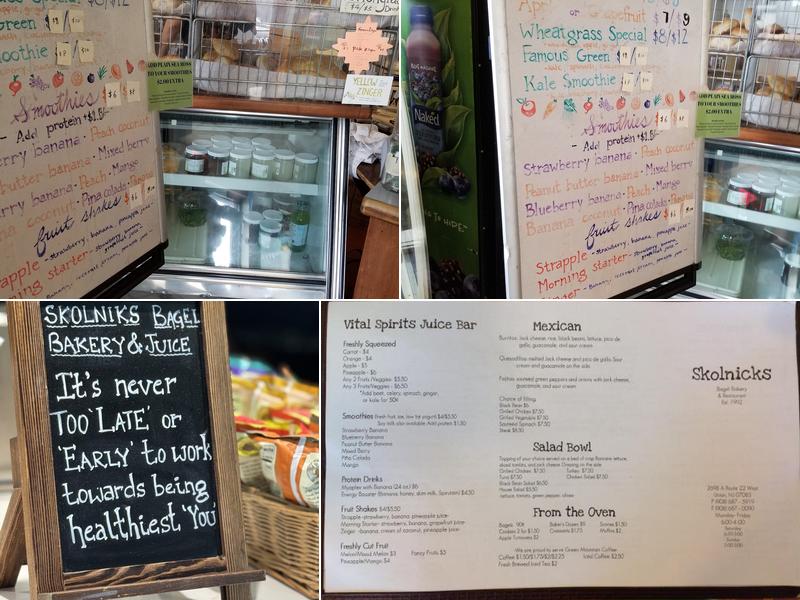 Green
Smoothie
Smoothies
- Add protein +$1.5/-
erry banana - Peach coconut
butter banana - Mixed berry
rry banana - Peach - Mango
coconut - Pina colada -
fruit shakes $
Strapple - strawberry, banana, pineapple juice -
rning starter -
ADD PLAIN SEA MOSS
TO YOUR SMOOTHIES
$2.00 EXTRA
YELLOW
ZINGER
or Grapefruit $7/9
Wheatgrass Special $8/$12
Famous Green
Kale Smoothie
Smoothies $6
- Add protein +$1.5/-
Strawberry banana - Peach coconut
Peanut butter banana - Mixed berry
Blueberry banana - Peach - Mango
Banana coconut - Pina colada -
fruit shakes $6
Strapple - strawberry, banana, pineapple juice -
Morning starter -
Naked
ADD PLAIN SEA MOSS
TO YOUR SMOOTHIES
$2.00 EXTRA
SKOLNIKS BAGEL
BAKERY & JUICE
It's never
TOO 'LATE' or
'EARLY' to work
towards being
healthiest 'You'
Vital Spirits Juice Bar
Freshly Squeezed
Carrot - $4
Orange - $4
Apple - $5
Pineapple - $6
Any 2 Fruits /Veggies- $5.50
Any 3 Fruits/Veggies - $6.50
*Add beet, celery, spinach, ginger,
or kale for 50¢
Smoothies Fresh fruit, ice, low fat yogurt $4/$5.50
Soy milk also available Add protein $1.50
Strawberry Banana
Blueberry Banana
Peanut Butter Banana
Mixed Berry
Piña Colada
Mango
Protein Drinks
Myoplex with Banana (24 oz.) $6
Energy Booster (Banana, honey, skim milk, Spiruten) $4.50
Fruit Shakes $4/$5.50
Strapple -strawberry, banana, pineapple juice-
Morning Starter- strawberry, banana, grapefruit juice-
Zinger -banana, cream of coconut, pineapple juice-
Freshly Cut Fruit
Melon/Mixed Melon $3 Fancy Fruits $5
Pineapple/Mango $4
Mexican
Burritos: Jack cheese, rice, black beans, lettuce, pico de
gallo, guacamole, and sour cream
Quesadillas melted Jack cheese and pico de gallo. Sour
cream and guacamole on the side
Fajitas sauteed green peppers and onions with jack cheese,
guacamole, and sour cream
Choice of filling:
Black Bean $6
Grilled Chicken $7.50
Grilled Vegetable $7.50
Sauteed Spinach $7.50
Steak $8.50
Salad Bowl
Topping of your choice served on a bed of crisp Romaine lettuce,
sliced tomato, and jack cheese Dressing on the side
Grilled Chicken $7.50 Turkey $7.50
Tuna $7.50 Chicken Salad $7.50
Black Bean Salad $6.50
House Salad $5.50
lettuce, tomato, green pepper, olives
From the Oven
Bagels 90¢ Baker's Dozen $9 Scones $1.50
Cookies 2 for $1.50 Croissants $1.75 Muffins $2
Apple Turnovers $2
We are proud to serve Green Mountain Coffee
Coffee $1.50/$1.75/$2/$2.25 Iced Coffee $2.50
Fresh Brewed Iced Tea $2
Skolnicks
Bagel Bakery
& Restaurant
Est. 1992
2698 A Route 22 West
Union, NJ 07083
P (908) 687 - 5919
F (908) 687 - 0090
Monday-Friday
6:00-4:00
Saturday
Sunday